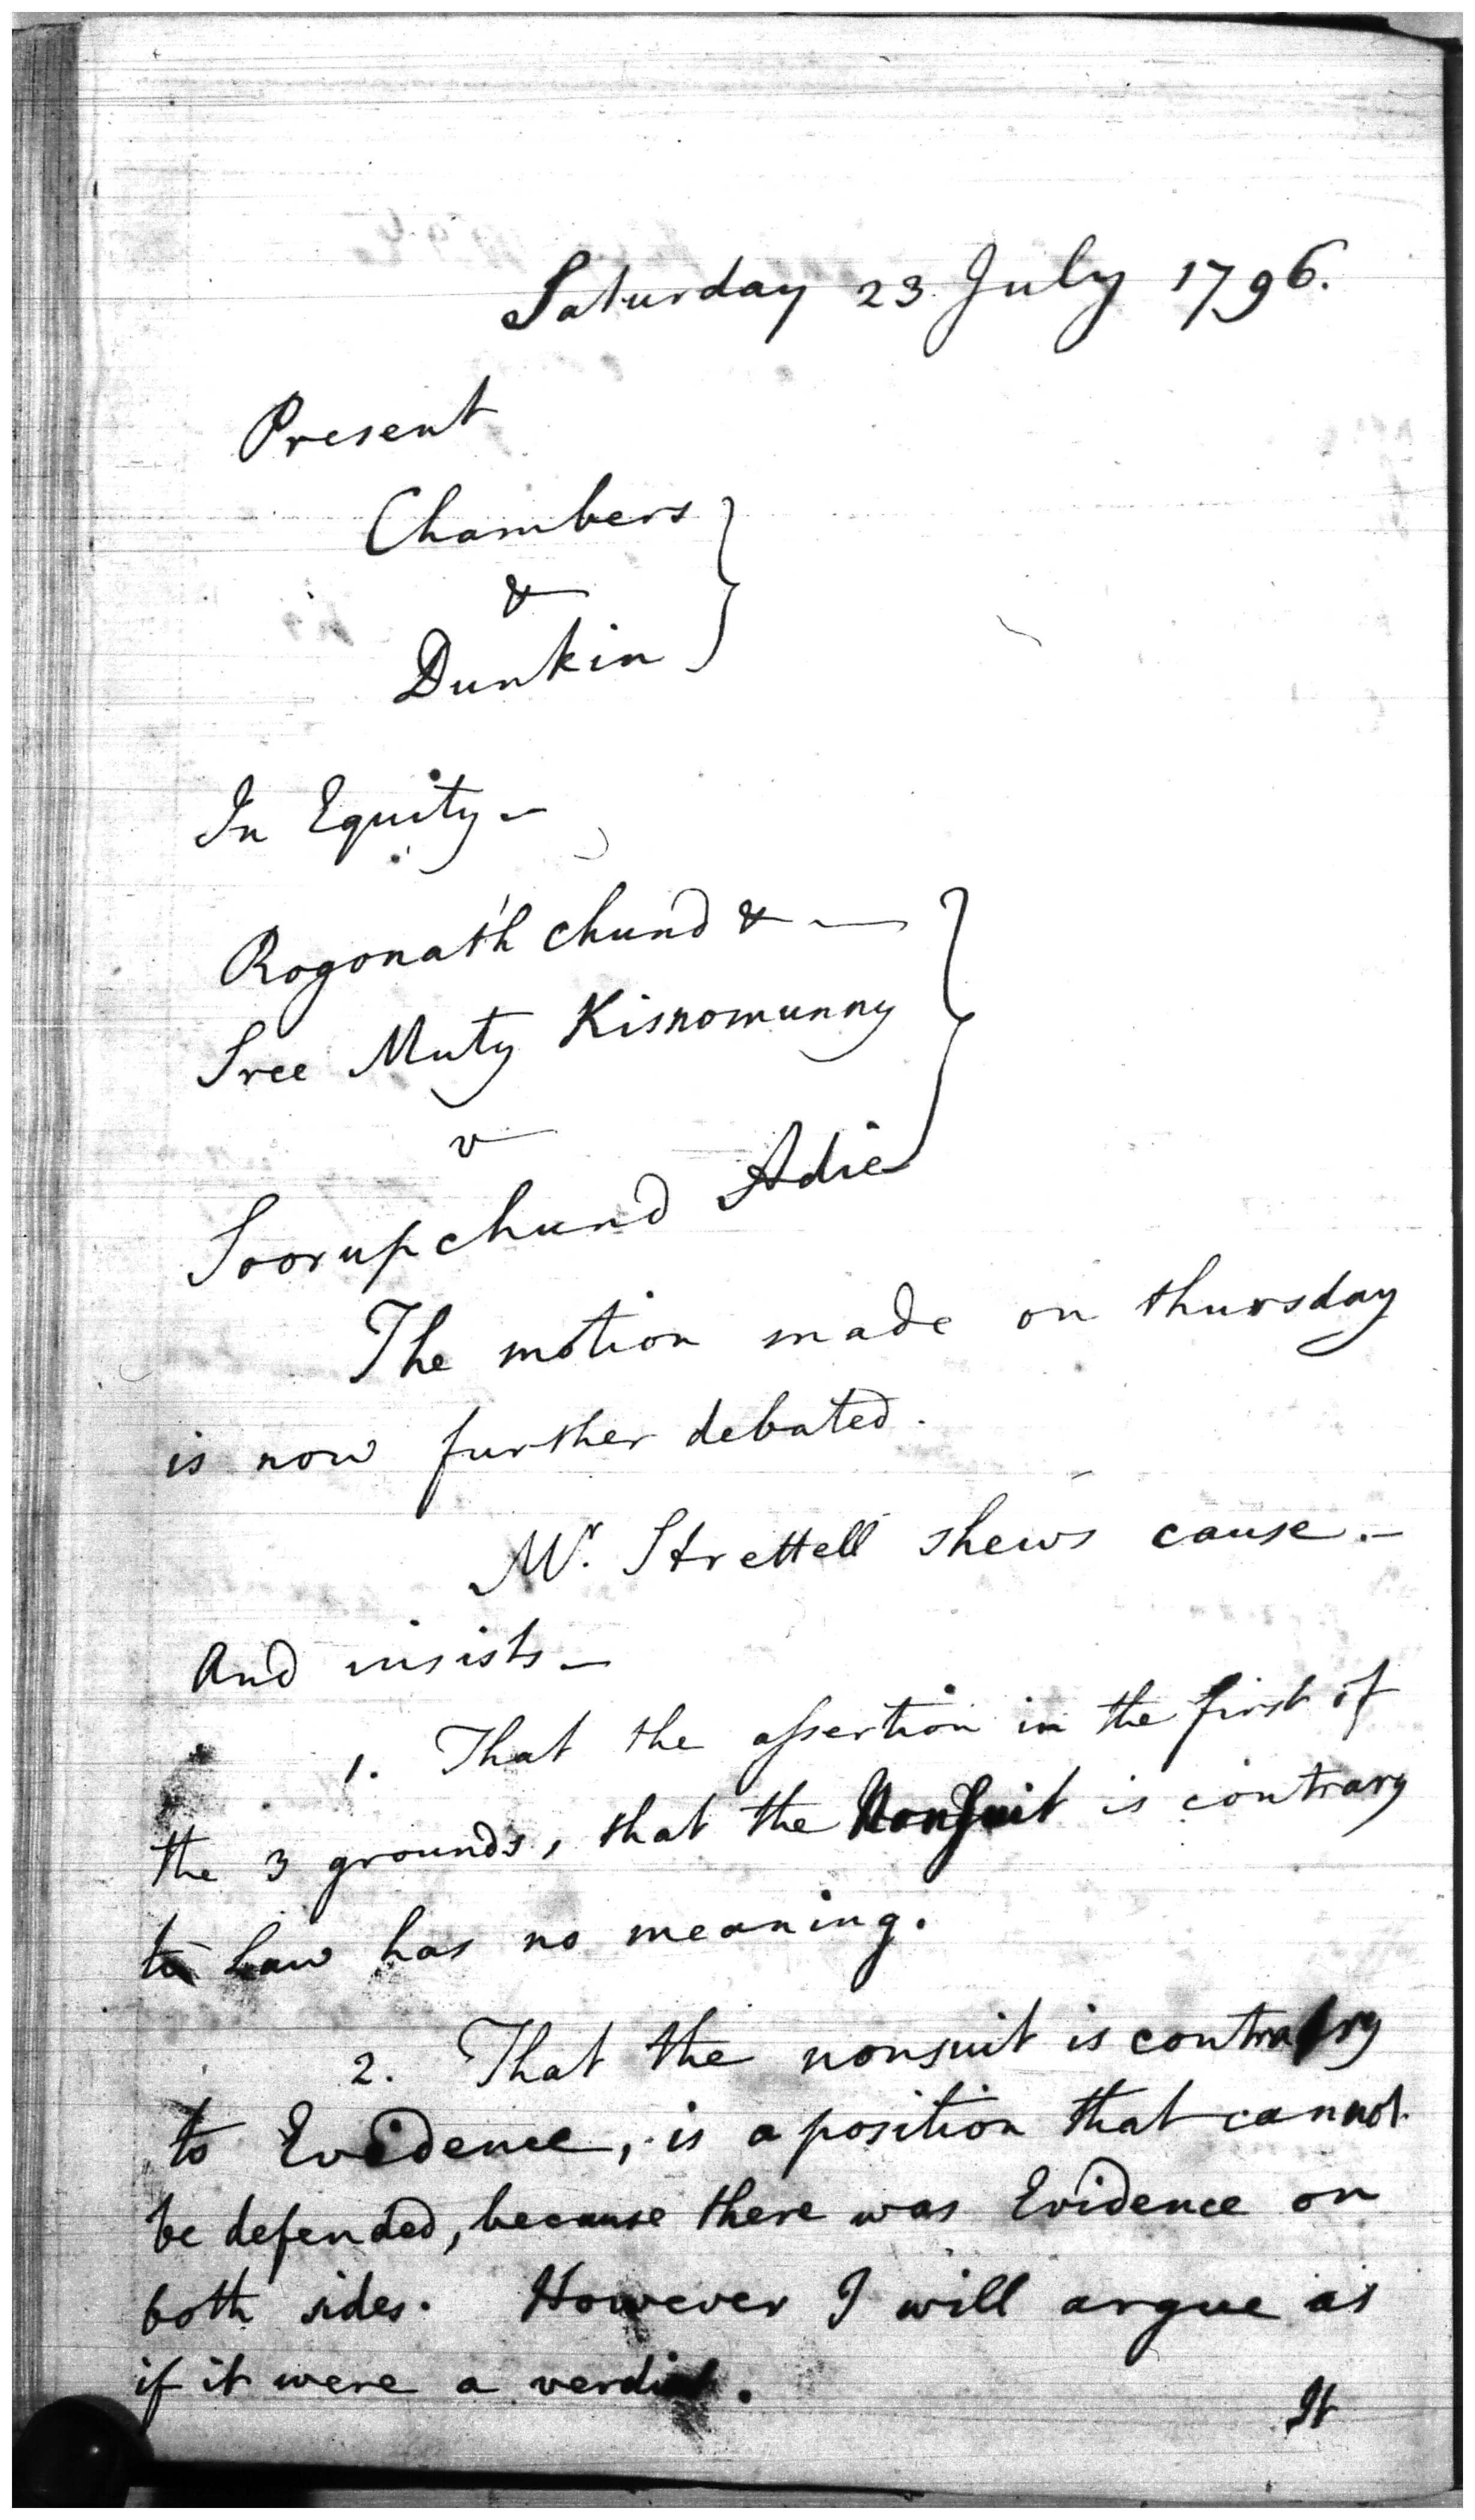 Saturday 23 July 1796.
Present
Chambers
&
Dunkin
In Equity -
Rogonath Chund & -
Sree Muty Kisnomunny
v
Soorupchund Adie
The motion made on thursday
is now further debated.
Mr. Strettell shews cause. -
And insists -
1. That the assertion in the first of
the 3 grounds, that the NonSuit is contrary
to Law has no meaning.
2. That the nonsuit is contrary
to Evidence, is a position that cannot
be defended, because there was Evidence on
both sides. However I will argue as
if it were a verdict.
It